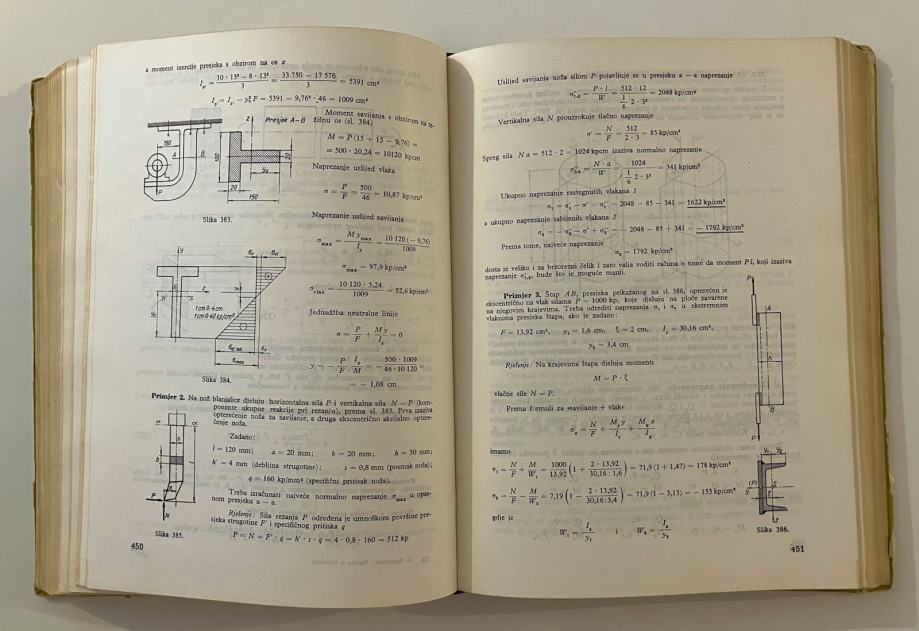 a moment inercije presjeka s obzirom na os z
I_z' = (10 · 15³ − 8 · 13³)/3 = (33 750 − 17 576)/3 = 5391 cm⁴
I_z = I_z' − y₀² F = 5391 − 9,76² · 46 = 1009 cm⁴
Presjek A–B
z
150
A
B
P
100
20
y₀
20
150
Slika 383.
Moment savijanja s obzirom na te-
žišnu os (sl. 384)
M = P (15 + 15 − 9,76) =
= 500 · 20,24 = 10120 kpcm
Naprezanje uslijed vlaka
σ = P/F = 500/46 = 10,87 kp/cm²
Naprezanje uslijed savijanja
σ_max = M y_max / I_z = 10 120 (−9,76) / 1009
σ_max = − 97,9 kp/cm²
σ_vlak = 10 120 · 5,24 / 1009 = 52,6 kp/cm²
Jednadžba neutralne linije
σ = P/F + M y/I_z = 0
y = − P/F · I_z/M = − 500 · 1009 / 46 · 10 120 =
= − 1,08 cm
Slika 384.
Primjer 2. Na nož blanjalice djeluju horizontalna sila P i vertikalna sila N = P (kom-
ponente ukupne reakcije pri rezanju), prema sl. 385. Prva izaziva
opterećenje noža za savijanje, a druga ekscentrično aksijalno optere-
ćenje noža.
Zadano:
l = 120 mm; a = 20 mm; b = 20 mm; h = 30 mm;
h' = 4 mm (debljina strugotine); s = 0,8 mm (posmak noža);
q = 160 kp/mm² (specifični pritisak noža).
Treba izračunati najveće normalno naprezanje σ_max u opas-
nom presjeku α − α.
Rješenje: Sila rezanja P određena je umnoškom površine pre-
sjeka strugotine F' i specifičnog pritiska q
P = N = F' · q = h' · s · q = 4 · 0,8 · 160 = 512 kp
Slika 385.
450
Uslijed savijanja noža silom P pojavljuje se u presjeku α − α naprezanje
= P · l / W = 512 · 12 / (1/6 · 2 · 3²) = 2048 kp/cm²
Vertikalna sila N prouzrokuje tlačno naprezanje
σ' = N/F = 512 / 2 · 3 = 85 kp/cm²
Spreg sila N a = 512 · 2 = 1024 kpcm izaziva normalno naprezanje
= N · a / W = 1024 / (1/6 · 2 · 3²) = 341 kp/cm²
Ukupno naprezanje rastegnutih vlakana 1
= 2048 − 85 − 341 = 1622 kp/cm²
a ukupno naprezanje sabijenih vlakana 2
= − 2048 − 85 + 341 = − 1792 kp/cm²
Prema tome, najveće naprezanje
= 1792 kp/cm²
dosta je veliko i za brzorezni čelik i zato valja voditi računa o tome da moment P l, koji izaziva
naprezanje bude što je moguće manji.
Primjer 3. Štap AB, presjeka prikazanog na sl. 386, opterećen je
ekscentrično na vlak silama P = 1000 kp, koje djeluju na ploče zavarene
na njegovim krajevima. Treba odrediti naprezanja σ₁ i σ₂ u ekstremnim
vlaknima presjeka štapa, ako je zadano:
F = 13,92 cm², y₁ = 1,6 cm, ξ = 2 cm, I_z = 30,16 cm⁴,
y₂ = 3,4 cm
Rješenje: Na krajevima štapa djeluju momenti
M = P · ξ
vlačne sile N = P.
Prema formuli za »savijanje + vlak«
σ_x = N/F + M_z y/I_z + M_y z/I_y
imamo
σ₁ = N/F + M/W₁ = 1000/13,92 (1 + 2 · 13,92 / 30,16 : 1,6) = 71,9 (1 + 1,47) = 178 kp/cm²
σ₂ = N/F − M/W₂ = 7,19 (1 − 2 · 13,92 / 30,16 : 3,4) = 71,9 (1 − 3,13) = − 153 kp/cm²
gdje je
W₁ = I_z/y₁ i W₂ = I_z/y₂
P
A
h
B
P
Slika 386.
451